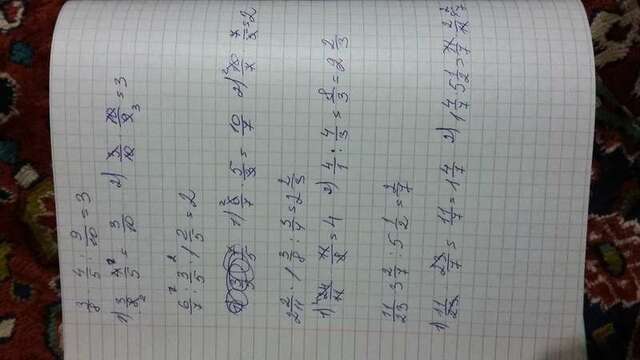 3/8 · 4/5 : 9/10 = 3
1) 3/8 · 4/5 = 3/10 2) 3/10 · 10/9 = 3
6/7 : 3/5 · 1 2/5 = 2
1) 6/7 · 5/3 = 10/7 2) 10/7 · 7/5 = 2
2 2/11 · 1 3/8 : 3/4 = 2 2/3
1) 24/11 · 11/8 = 4 2) 4/1 : 4/3 = 8/3 = 2 2/3
11/23 · 3 2/7 : 5 1/2 = 2/7
1) 11/23 · 23/7 = 11/7 = 1 4/7 2) 1 4/7 · 5 1/2 = 11/7 · 2/11 = 2/7